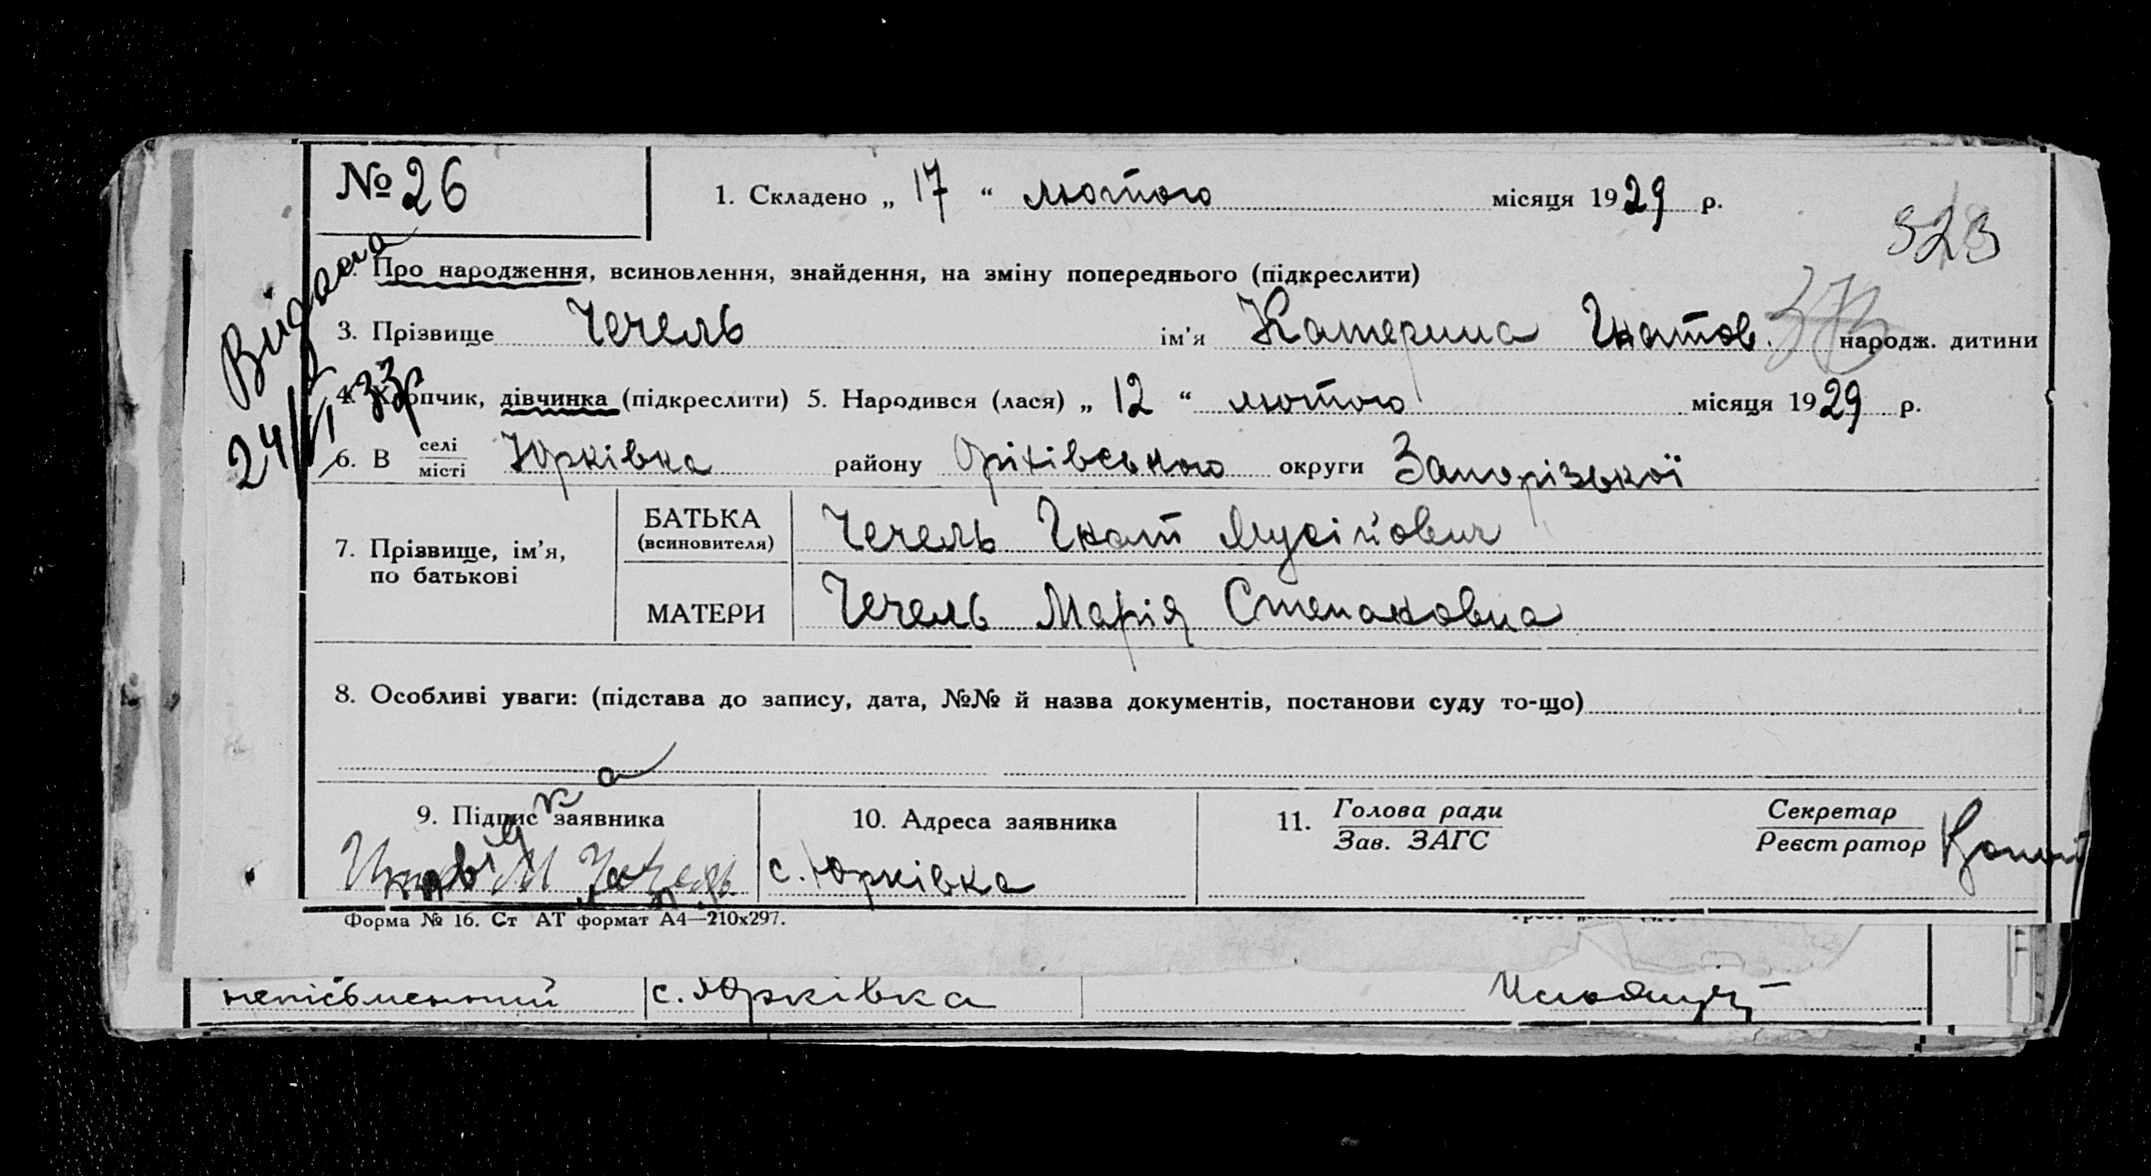 № 26
1. Складено „ 17 “ лютого місяця 1929 р.
523
373
2. Про народження, всиновлення, знайдення, на зміну попереднього (підкреслити)
3. Прізвище Чечель ім’я Катерина Гнатов. народж. дитини
4. Хлопчик, дівчинка (підкреслити) 5. Народився (лася) „ 12 “ лютого місяця 1929 р.
6. В селі місті Юрківка району Оріхівського округи Запорізької
Видана
7. Прізвище, ім’я, по батькові
БАТЬКА (всиновителя) Чечель Гнат Мусійович
МАТЕРИ Чечель Марія Степановна
8. Особливі уваги: (підстава до запису, дата, №№ й назва документів, постанови суду то-що)
9. Підпис заявника
10. Адреса заявника
11. Голова ради Зав. ЗАГС
Секретар Реєстратор
с. Юрківка
Форма № 16. Ст АТ формат А4—210х297.
непісьменний с. Юрківка